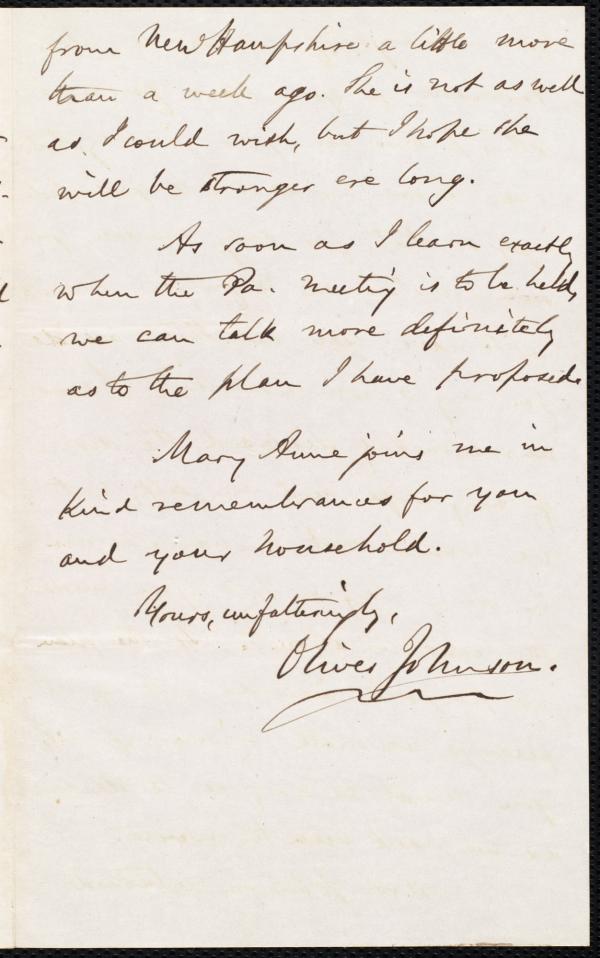 from New Hampshire a little more
than a week ago. She is not as well
as I could wish, but I hope she
will be stronger ere long.
As soon as I learn exactly
when the Pa. meeting is to be held,
we can talk more definitely
as to the plan I have proposed.
Mary Anne joins me in
kind remembrances for you
and your household.
Yours, unfalteringly,
Oliver Johnson.